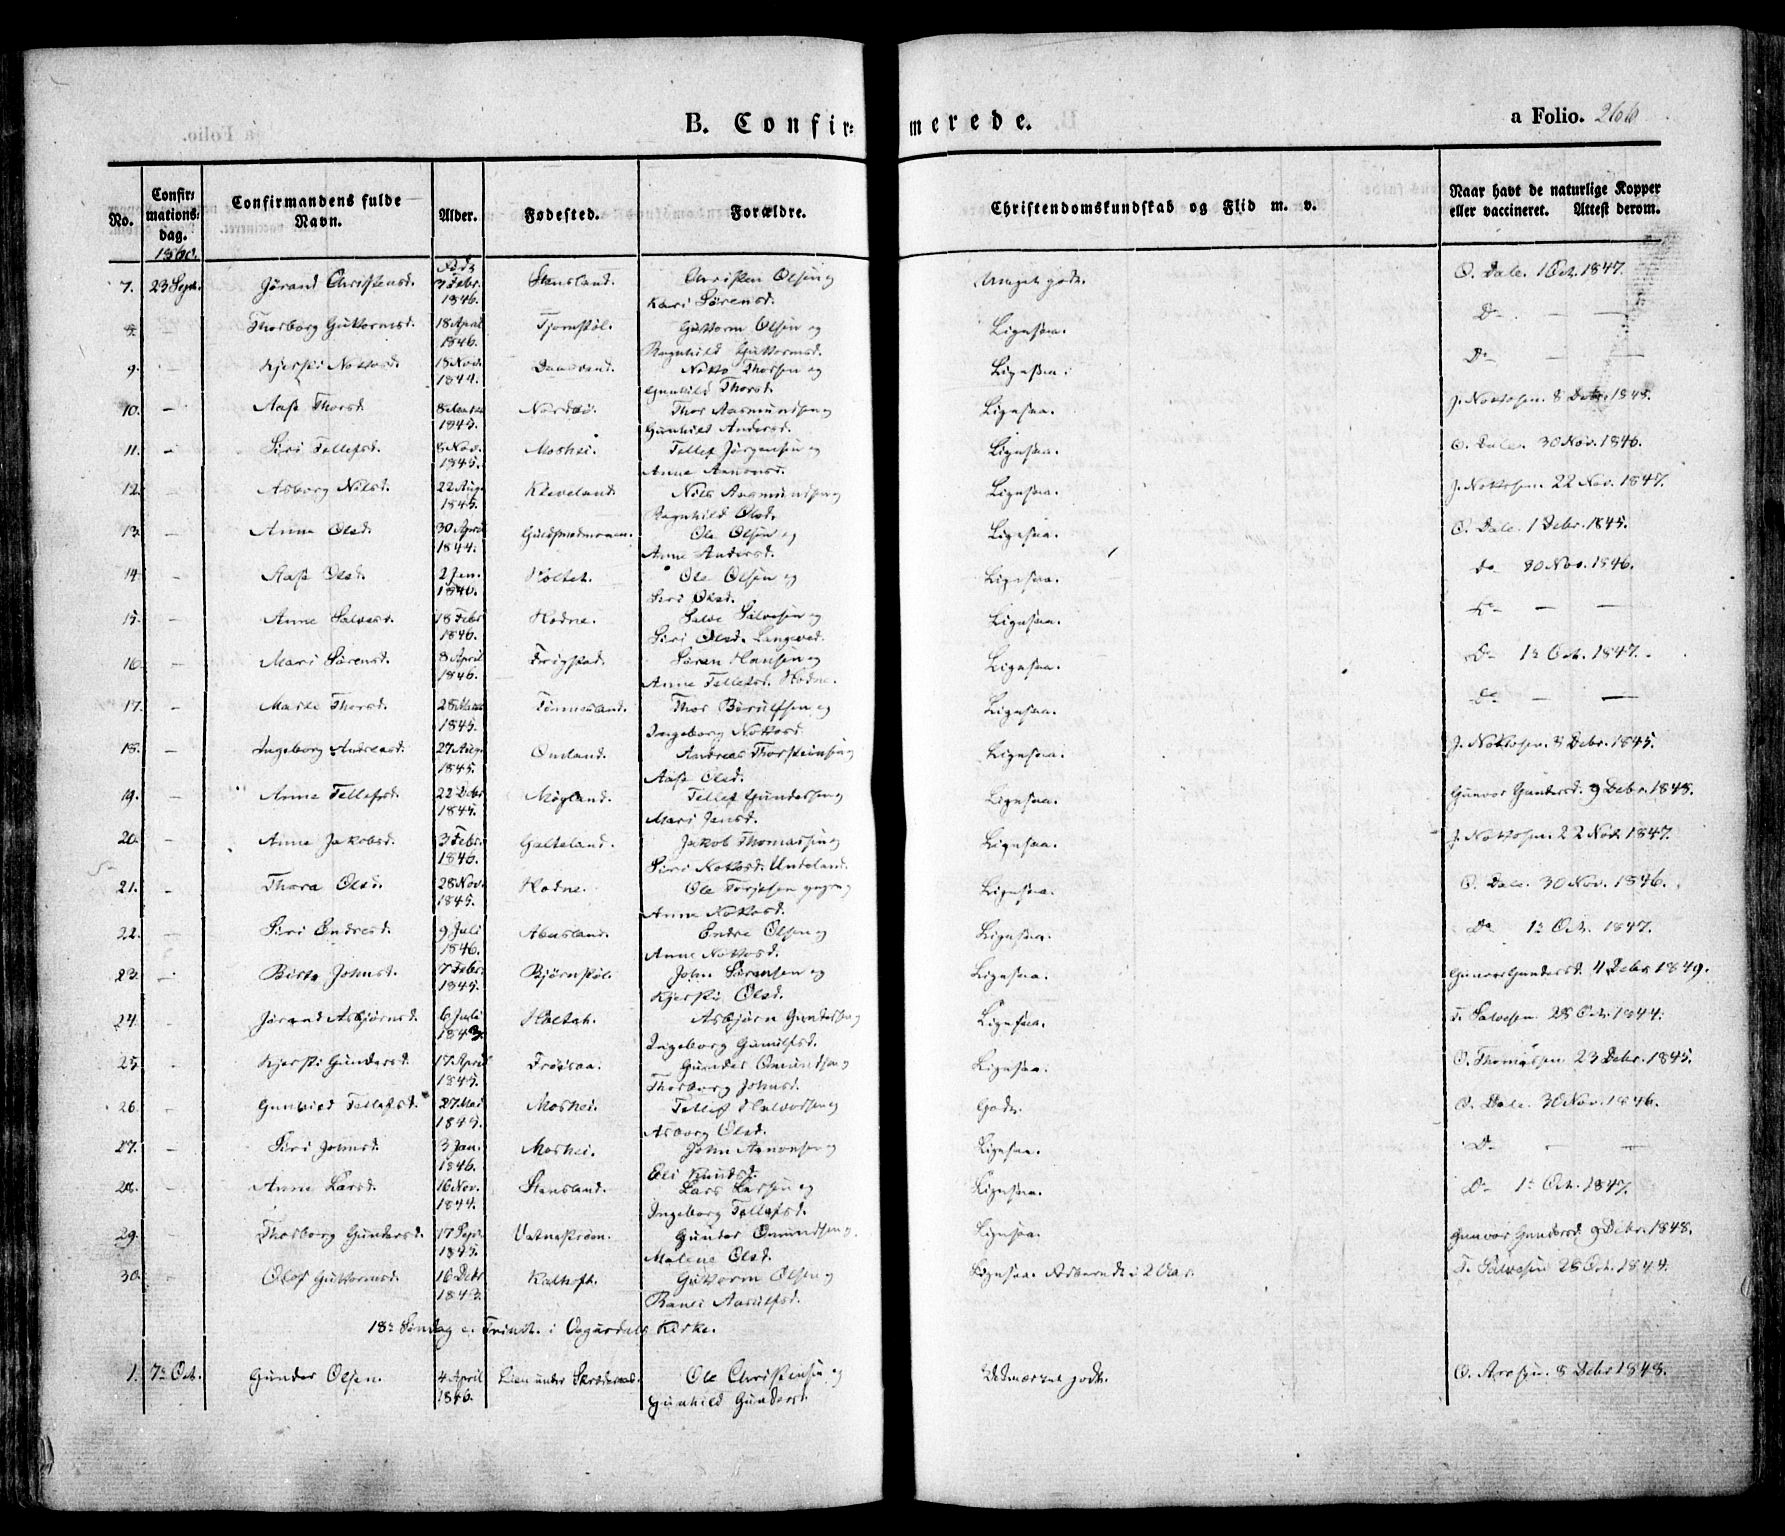 B. Confirmerede.
a Folio. 266
No. Confirmations-dag. Confirmandens fulde Navn. Alder. Fødested. Forældre. Christendomskundskab og Flid m. v. Naar havt de naturlige Kopper eller vaccineret. Attest derom.
1860.
7. 23 Sept. Jørand Christensd. 7 Febr. 1846. Stensland. Christen Olsen og Kari Sørensd. Meget godt. O. Dale. 1 Oct. 1847.
8. Thorborg Guttormsd. 18 April 1846. Guttorm Olsen og Ragnhild Guttormsd. Ligesaa. Do — —
9. — Kjersti Nottosd. 18 Nov. 1844. Notto Thorsen og Gunhild Thorsd. Ligesaa. Do — —
10. — Aase Thorsd. 1845. Thor Aasmundsen og Gunhild Andersd. Ligesaa. J. Nottosen. 8 Debr. 1845.
11. — Siri Tellefsd. 8 Nov. 1845. Moshei. Tellef Jørgensen og Anne Aanonsd. Ligesaa. O. Dale. 30 Nov. 1846.
12. — Asborg Nilsd. 22 Aug. 1845. Kleveland. Nils Aasmundsen og Ragnhild Olsd. Ligesaa. J. Nottosen. 22 Nov. 1847.
13. — Anne Olsd. 30 April 1844. Guldsmedmoen. Ole Olsen og Anne Andersd. Ligesaa. O. Dale. 1 Debr. 1845.
14. — Aase Olsd. 2 Jan. 1846. Holtet. Ole Olsen og Siri Olsd. Ligesaa. do 30 Nov. 1846.
15. — Anne Salvesd. 18 Febr. 1846. Hodne. Salve Salvesen og Siri Olsd. Langeved. Ligesaa. Do — —
16. — Mari Sørensd. 8 April 1846. Frigstad. Søren Hansen og Anne Tellefsd. Hodne. Ligesaa. Do 1te Oct. 1847.
17. — Marte Thorsd. 1845. Tønnesland. Thor Berulfsen og Ingeborg Nottosd. Ligesaa. Do — —
18. — Ingeborg Andreasd. 27 Aug. 1845. Omland. Andreas Thorsteinsen og Aase Olsd. Ligesaa. J. Nottosen. 8 Debr. 1845.
19. — Anne Tellefsd. 22 Debr. 1845. Møgland. Tellef Gundersen og Mari Jensd. Ligesaa. Gunvor Gundersd. 9 Debr. 1848.
20. — Anne Jakobsd. 3 Febr. 1846. Galteland. Jakob Thomassen og Siri Nottosd. Undeland. Ligesaa. J. Nottosen. 22 Nov. 1847.
21. — Thora Olsd. 28 Nov. 1845. Hodne. Ole Terjesen og Anne Nottosd. Ligesaa. O. Dale. 30 Nov. 1846.
22. — Siri Endresd. 9 Juli 1846. Abusland. Endre Olsen og Anne Nottosd. Ligesaa. Do 1te Oct. 1847.
23. — Berte Johnsd. 7 Febr. 1845. Bjørnstøl. John Sørensen og Kjersti Olsd. Ligesaa. Gunvor Gundersd. 4 Debr. 1849.
24. — Jørand Asbjørnsd. 6 Juli 1843. Holtet. Asbjørn Gundersen og Ingeborg Gunulfsd. Ligesaa. T. Salvesen 28 Oct. 1844.
25. — Kjersti Gundersd. 17 April 1845. Frøisaa. Gunder Omundsen og Thorborg Johnsd. Ligesaa. O. Thomassen 23 Debr. 1845.
26. — Gunhild Tellefsd. 27 Mai 1845. Moshei. Tellef Halvorsen og Asborg Olsd. Godt. O. Dale. 30 Nov. 1846.
27. — Siri Johnsd. 3 Jan. 1846. Moshei. John Aanonsen og Eli Knudsd. Ligesaa. Do — —
28. — Anne Larsd. 16 Nov. 1844. Stensland. Lars Larsen og Ingeborg Tellefsd. Ligesaa. Do 1te Oct. 1847.
29. — Thorborg Gundersd. 17 Sept. 1845. Vatnestrøm. Gunder Omundsen og Malene Olsd. Ligesaa. Gunvor Gundersd. 9 Debr. 1848.
30. — Olof Guttormsd. 16 Debr. 1843. Guttorm Olsen og Ranei Aasulfsd. Ligesaa. i 2 Aar. T. Salvesen 28 Oct. 1844.
18de Søndag e. Trinit. i Vegusdals Kirke.
1. 7de Oct. Gunder Olsen. 4 April 1846. Lien under Ole Christensen og Gunhild Gundersd. Udmærket godt. O. Arosen. 8 Debr 1848.